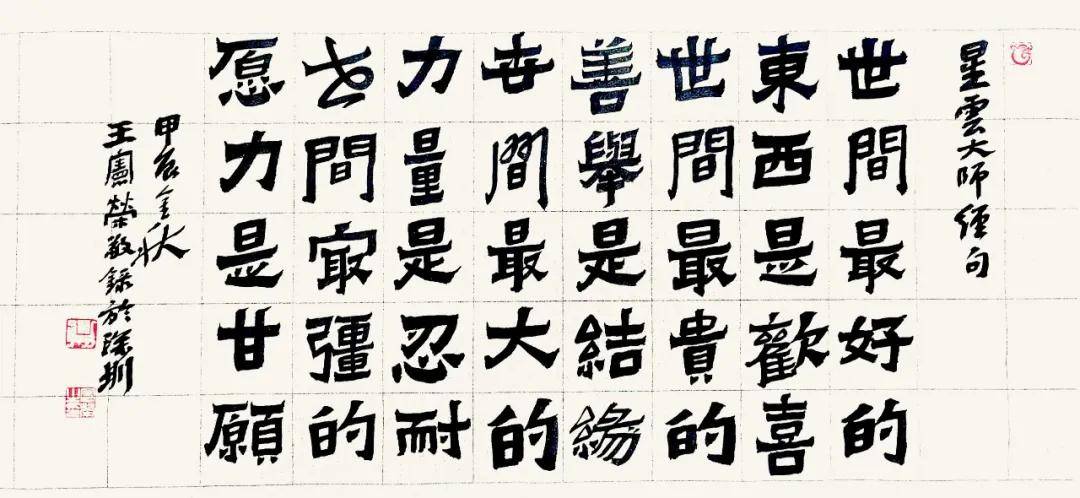 星雲大师經句
世間最好的
東西是歡喜
世間最貴的
善舉是結緣
世間最大的
力量是忍耐
世間㝡彊的
愿力是甘願
甲辰金秋
王憲榮敬錄於深圳